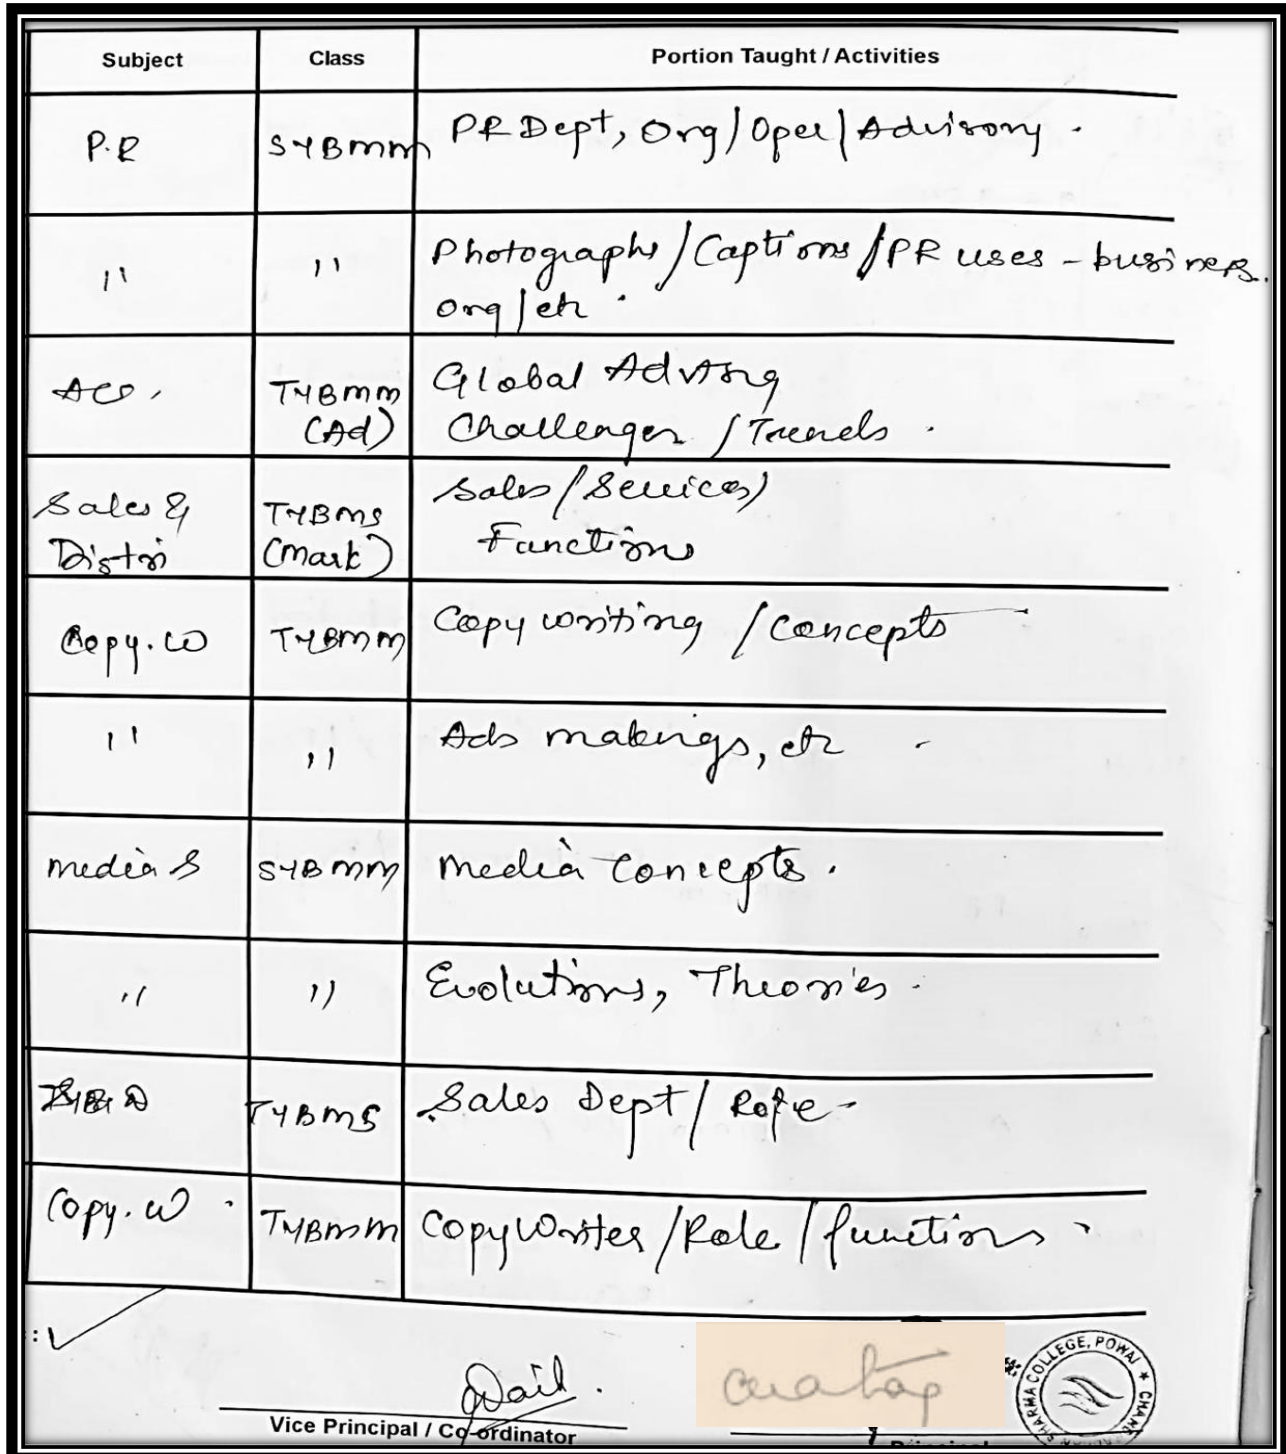 Subject Class Portion Taught / Activities
P.R SYBMM PR Dept, Org/Oper/Advisory.
" " Photographs/Captions/PR uses - business.
org/etc.
TYBMM Global Advtsng
(Ad) Challenges/Trends.
Sales & TYBMS Sales/Services/
Distri (Mark) Functions
Copy.W TYBMM Copy writing / Concepts
" " Ads makings, etc
Media S SYBMM Media Concepts.
" " Evolutions, Theories.
TYBMS Sales Dept/ Role
Copy.W. TYBMM CopyWriter/Role/functions.
Vice Principal / Co-ordinator
Principal
SHARMA COLLEGE, POWAI